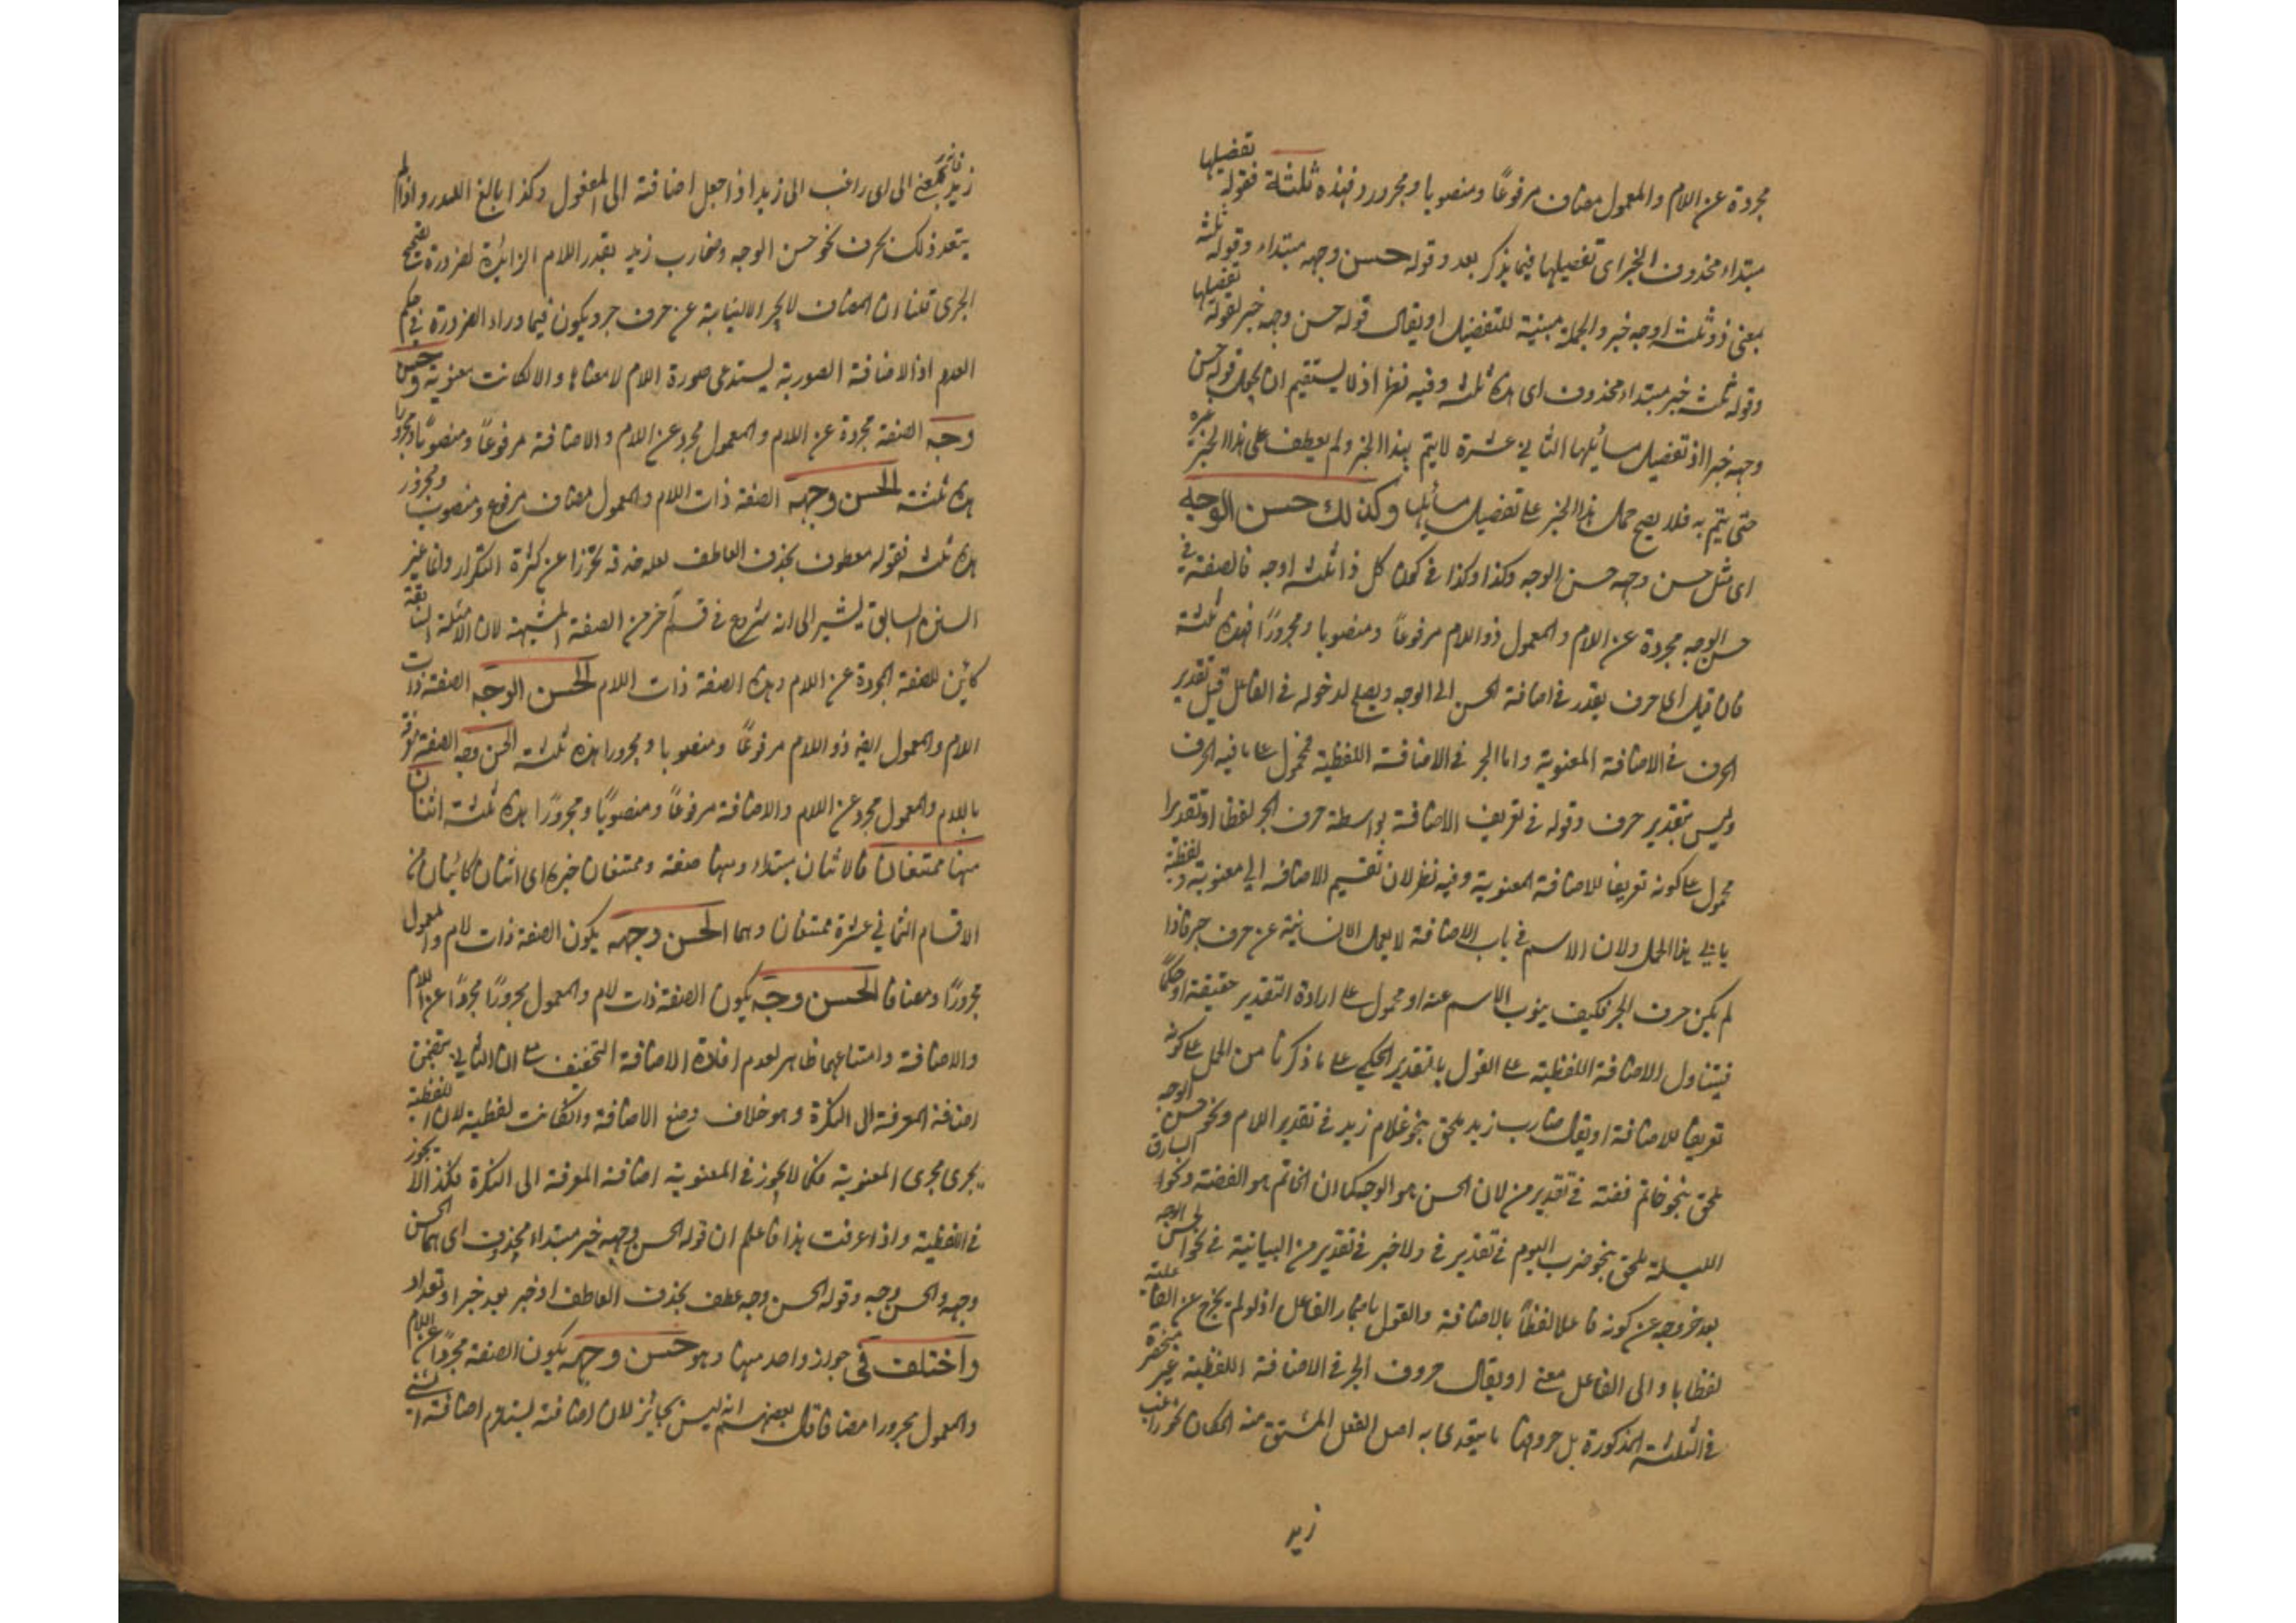 مجردة عن اللام والمعمول مضاف مرفوعًا ومنصوبا ومجرورا فهذه ثلثة فقوله تفصيلها
مبتداء محذوف الخبر اى تفصيلها فيما يذكر بعد وقوله حسن وجهه مبتداء وقوله ثلثة
بمعنى ذو ثلثة اوجه خبر والجملة مبينة للتفصيل او يقال قوله حسن وجهه خبر لقوله تفصيلها
وقوله ثلثة خبر مبتداء محذوف اى هذه ثلثة وفيه نظر اذ لا يستقيم ان يجعل قوله حسن
وجهه خبرا اذ تفصيل مسائلها الثانى عشرة لا يتم بهذا الخبر ولم يعطف على هذا الخبر غيره
حتى يتم به فلا يصح حمل هذا الخبر على تفصيل مسائلها وكذلك حسن الوجه
اى مثل حسن وجهه حسن الوجه وكذا وكذا فى كون كل ذا ثلثة اوجه فالصفة فى
حسن الوجه مجردة عن اللام والمعمول ذو اللام مرفوعًا ومنصوبا ومجرورًا فهذه ثلثة
فان قيل اى حرف يقدر فى اضافة الحسن الى الوجه ويصلح لدخوله فى الفاعل قيل تقدير
الحرف فى الاضافة المعنوية واما الجر فى الاضافة اللفظية فمحمول على ما فيه الحرف
وليس بتقدير حرف وقوله فى تعريف الاضافة بواسطة حرف الجر لفظا او تقديرا
محمول على كونه تعريفا للاضافة المعنوية وفيه نظر لان تقسيم الاضافة الى معنوية ولفظية
يابى هذا الحمل ولان الاسم فى باب الاضافة لا يعمل الا لنيابته عن حرف جر فاذا
لم يكن حرف الجر فكيف ينوب الاسم عنه او محمول على ارادة التقدير حقيقة او حكمًا
فيتناول الاضافة اللفظية على القول بالتقدير الحكمى على ما ذكرنا من الحمل على كونه
تعريفا للاضافة او يقال ضارب زيد ملحق بنحو غلام زيد فى تقدير اللام ونحو حسن الوجه
ملحق بنحو خاتم فضة فى تقدير من لان الحسن هو الوجه كما ان الخاتم هو الفضة ونحو السارق
الليلة ملحق بنحو ضرب اليوم فى تقدير فى ولا خير فى تقدير من البيانية فى نحو الحسن الوجه
بعد خروجه عن كونه فاعلا لفظًا بالاضافة والقول باضمار الفاعل اذ لو لم يخرج عن الفاعلية
لفظا با والى الفاعل معنى او يقال حروف الجر فى الاضافة اللفظية غير منحصرة
فى الثلثة المذكورة بل حروفها ما يتعدى به اصل الفعل المشتق منه المكان نحو راغب
زيد
زيد فانه بمعنى الى اى راغب الى زيد اذا جعل اضافة الى المفعول وكذا بالغ البدر واذا لم
يتعد ذلك بحرف نحو حسن الوجه وضارب زيد يقدر اللام الزائدة لضرورة تصحيح
الجرى قلنا ان المضاف لا يجر الا لنيابة عن حرف جر ويكون فيما وراء الضرورة فى حكم
العدم اذ الاضافة الصورية يستدعى صورة اللام لا معناها والا لكانت معنوية وحسن
وجه الصفة مجردة عن اللام والمعمول مجرد عن اللام والاضافة مرفوعًا ومنصوبًا ومجرورا
هذه ثلثة الحسن وجهه الصفة ذات اللام والمعمول مضاف مرفوع ومنصوب ومجرور
هذه ثلثة فقوله معطوف بحذف العاطف لعله حذفه تحرزا عن كثرة التكرار وانما غير
السنن السابق يشير الى انه شروع فى قسم آخر من الصفة المشبهة لان الامثلة السابقة
كاين للصفة المجردة عن اللام وهذه الصفة ذات اللام الحسن الوجه الصفة ذات
اللام والمعمول ايضا ذو اللام مرفوعًا ومنصوبا ومجرورا هذه ثلثة الحسن وجه الصفة معرفة
باللام والمعمول مجرد عن اللام والاضافة مرفوعًا ومنصوبًا ومجرورًا هذه ثلثة اثنان
منها ممتنعان فالاثنان مبتداء ومنها صفة وممتنعان خبره اى اثنان كائنان من
الاقسام الثمانى عشرة ممتنعان وهما الحسن وجهه يكون الصفة ذات لام والمعمول
مجرورًا ومضافا الحسن وجه يكون الصفة ذات لام والمعمول مجرورًا مجردًا عن اللام
والاضافة وامتناعهما ظاهر لعدم افادة الاضافة التخفيف مع ان الثانى يتضمن
اضافة المعرفة الى النكرة وهو خلاف وضع الاضافة وان كانت لفظية لان اللفظية
يجرى مجرى المعنوية فكما لا يجوز فى المعنوية اضافة المعرفة الى النكرة فكذا لا يجوز
فى اللفظية واذا عرفت هذا فاعلم ان قوله الحسن وجهه خبر مبتداء محذوف اى هما الحسن
وجهه والحسن وجه وقوله الحسن وجه عطف بحذف العاطف او خبر بعد خبر او تعداد
واختلف فى جواز واحد منها وهو حسن وجهه يكون الصفة مجردًا عن اللام
والمعمول مجرورا مضافا قال بعضهم انه ليس بجائز لان اضافته يستلزم اضافة الشئ